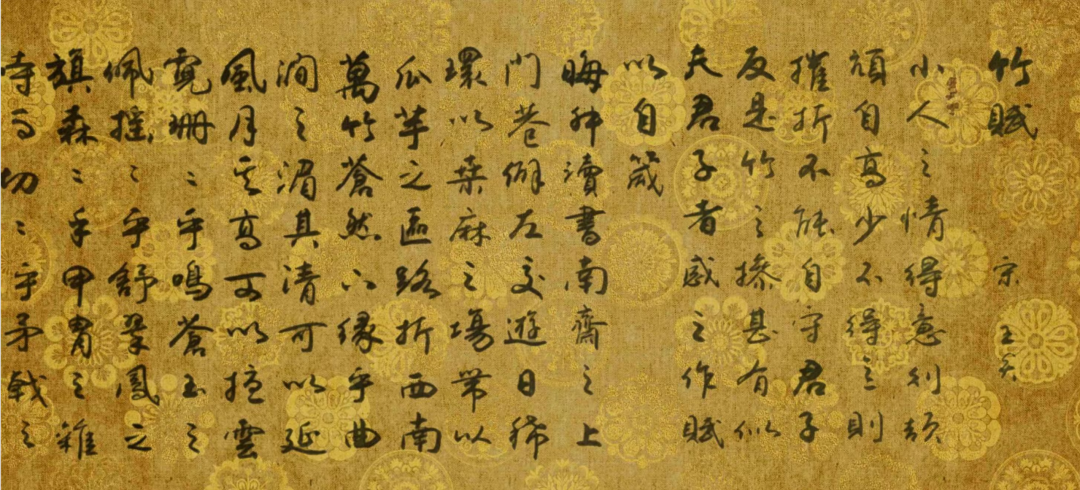 竹賦 宋 王炎
小人之情得意則頡
頏自高少不得志則
摧折不能自守君子
反是竹之操甚有似
夫君子者感之作賦
以自箴
晦叔讀書南齋之上
門巷僻左交遊日稀
環以桑麻之場帶以
瓜芋之區路折西南
萬竹蒼然下緣乎曲
澗之湄其清可以延
風月其高可以擅雲
霓珊〻乎鳴蒼玉之
佩搖〻乎舒翠鳳之
旗森〻乎甲冑之雜
与切〻乎矛戟之